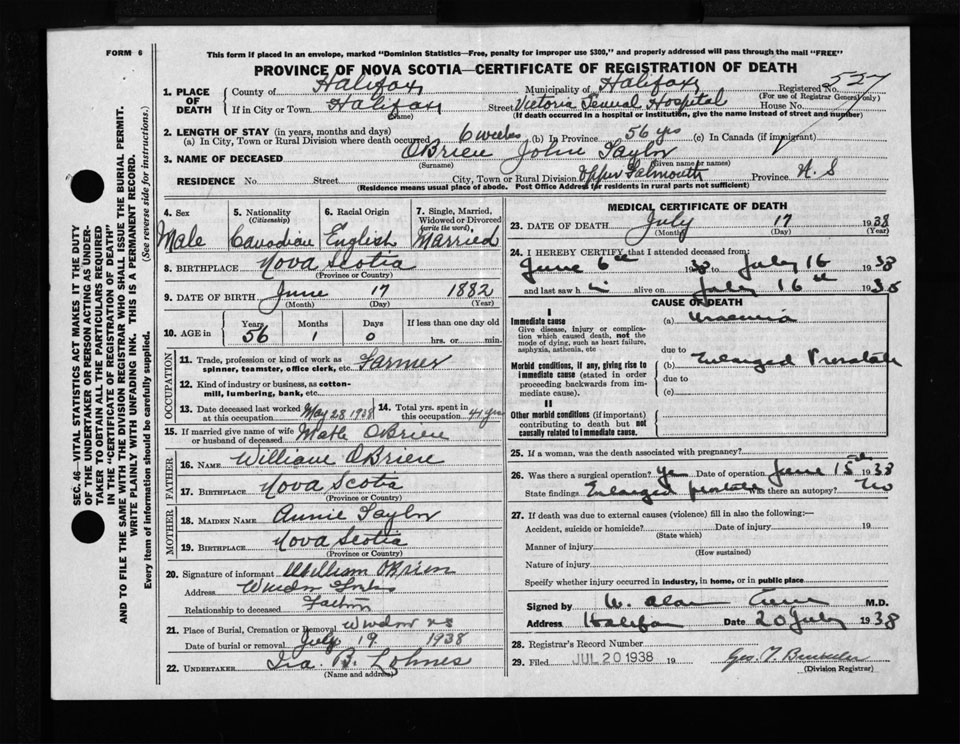 FORM 6
This form if placed in an envelope, marked "Dominion Statistics—Free, penalty for improper use $300," and properly addressed will pass through the mail "FREE"
PROVINCE OF NOVA SCOTIA—CERTIFICATE OF REGISTRATION OF DEATH
1. PLACE OF DEATH
County of Halifax Municipality of Halifax Registered No. 527
(For use of Registrar General only)
If in City or Town Halifax Street Victoria General Hospital House No.
(Name) (If death occurred in a hospital or institution, give the name instead of street and number)
2. LENGTH OF STAY (in years, months and days)
(a) In City, Town or Rural Division where death occurred 6 weeks (b) In Province 56 yrs (c) In Canada (if immigrant)
3. NAME OF DECEASED OBrien John Taylor
(Surname) (Given name or names)
RESIDENCE No. Street City, Town or Rural Division Upper Falmouth Province N. S
(Residence means usual place of abode. Post Office Address for residents in rural parts not sufficient)
4. Sex Male
5. Nationality (Citizenship) Canadian
6. Racial Origin English
7. Single, Married, Widowed or Divorced (write the word) Married
8. BIRTHPLACE Nova Scotia
(Province or Country)
9. DATE OF BIRTH June 17 1882
(Month) (Day) (Year)
10. AGE in Years Months Days If less than one day old
56 1 0 hrs. or min.
OCCUPATION
11. Trade, profession or kind of work as spinner, teamster, office clerk, etc. Farmer
12. Kind of industry or business, as cotton-mill, lumbering, bank, etc.
13. Date deceased last worked at this occupation May 28 1938
14. Total yrs. spent in this occupation 41 years
15. If married give name of wife or husband of deceased OBrien
FATHER
16. NAME William OBrien
17. BIRTHPLACE Nova Scotia
(Province or Country)
MOTHER
18. MAIDEN NAME Annie Taylor
19. BIRTHPLACE Nova Scotia
(Province or Country)
20. Signature of informant William OBrien
Address Windsor Forks
Relationship to deceased Father
21. Place of Burial, Cremation or Removal Windsor NS
Date of burial or removal July 19 1938
22. UNDERTAKER Ira. B. Lohnes
(Name and address)
MEDICAL CERTIFICATE OF DEATH
23. DATE OF DEATH July 17 1938
(Month) (Day) (Year)
24. I HEREBY CERTIFY that I attended deceased from:
June 6th 1938 to July 16 1938
and last saw h im alive on July 16th 1938
CAUSE OF DEATH
I
Immediate cause
Give disease, injury or complication which caused death, not the mode of dying, such as heart failure, asphyxia, asthenia, etc
(a) Uraemia
due to
Morbid conditions, if any, giving rise to immediate cause (stated in order proceeding backwards from immediate cause).
(b) Enlarged Prostate
due to
(c)
II
Other morbid conditions (if important) contributing to death but not causally related to immediate cause.
25. If a woman, was the death associated with pregnancy?
26. Was there a surgical operation? Yes Date of operation June 15th 1938
State findings Enlarged prostate Was there an autopsy? No
27. If death was due to external causes (violence) fill in also the following:—
Accident, suicide or homicide? Date of injury 19
(State which)
Manner of injury
(How sustained)
Nature of injury
Specify whether injury occurred in industry, in home, or in public place
Signed by W. Alan M.D.
Address Halifax Date 20 July 1938
28. Registrar's Record Number
29. Filed JUL 20 1938 19
(Division Registrar)
SEC. 46—VITAL STATISTICS ACT MAKES IT THE DUTY
OF THE UNDERTAKER OR PERSON ACTING AS UNDER-
TAKER TO OBTAIN ALL THE PARTICULARS REQUIRED
IN THE "CERTIFICATE OF REGISTRATION OF DEATH"
AND TO FILE THE SAME WITH THE DIVISION REGISTRAR WHO SHALL ISSUE THE BURIAL PERMIT.
WRITE PLAINLY WITH UNFADING INK. THIS IS A PERMANENT RECORD.
Every item of information should be carefully supplied. (See reverse side for instructions.)